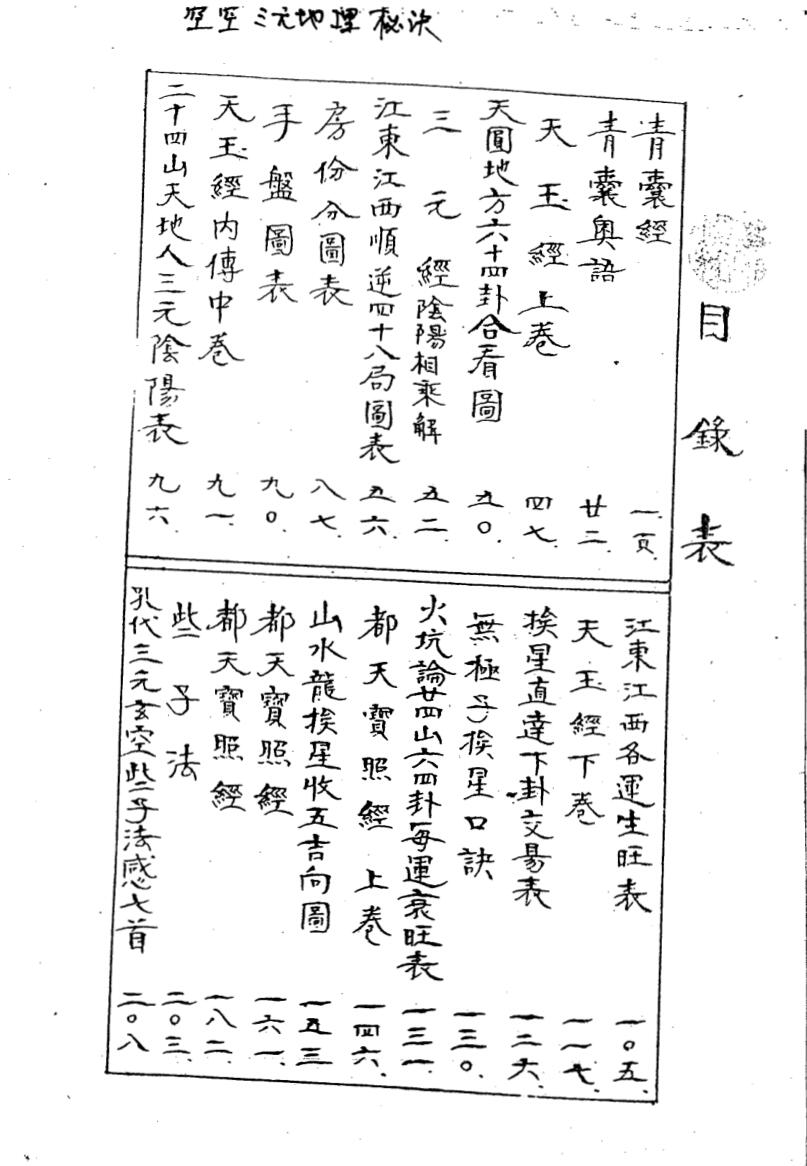 空空三元地理秘決
目錄表
青囊經 一頁
青囊奧語 廿二
天玉經上卷 四七
天圓地方六十四卦合看圖 五〇
三元經陰陽相乘解 五二
江東江西順逆四十八局圖表 五六
房份分圖表 八七
手盤圖表 九〇
天玉經內傳中卷 九一
二十四山天地人三元陰陽表 九六
江東江西各運生旺表 一〇五
天玉經下卷 一一七
挨星直達下卦交易表 一二六
無極子挨星口訣 一三〇
火坑論廿四山六四卦每運衰旺表 一三一
都天寶照經上卷 一四六
山水龍挨星收五吉向圖 一五三
都天寶照經 一六一
都天寶照經 一八二
些子法 二〇三
代三元玄空些子法感七首 二〇八